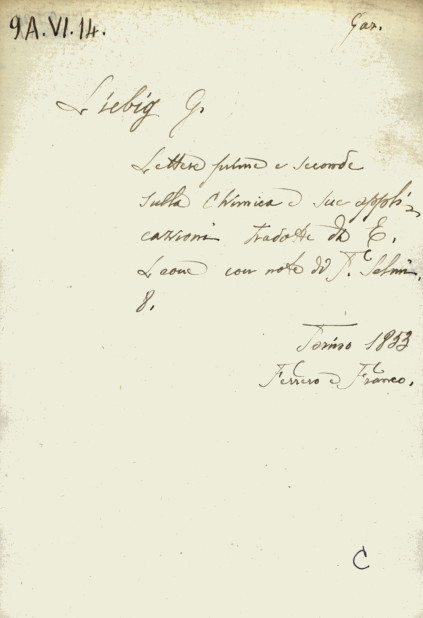 9A.VI.14.
Gar.
Liebig G.
Lettere prime e seconde
sulla Chimica e sue appli=
cazioni tradotte da E.
Leone con note di F. Selmi.
8.
Torino 1853
Ferrero e Franco.
C